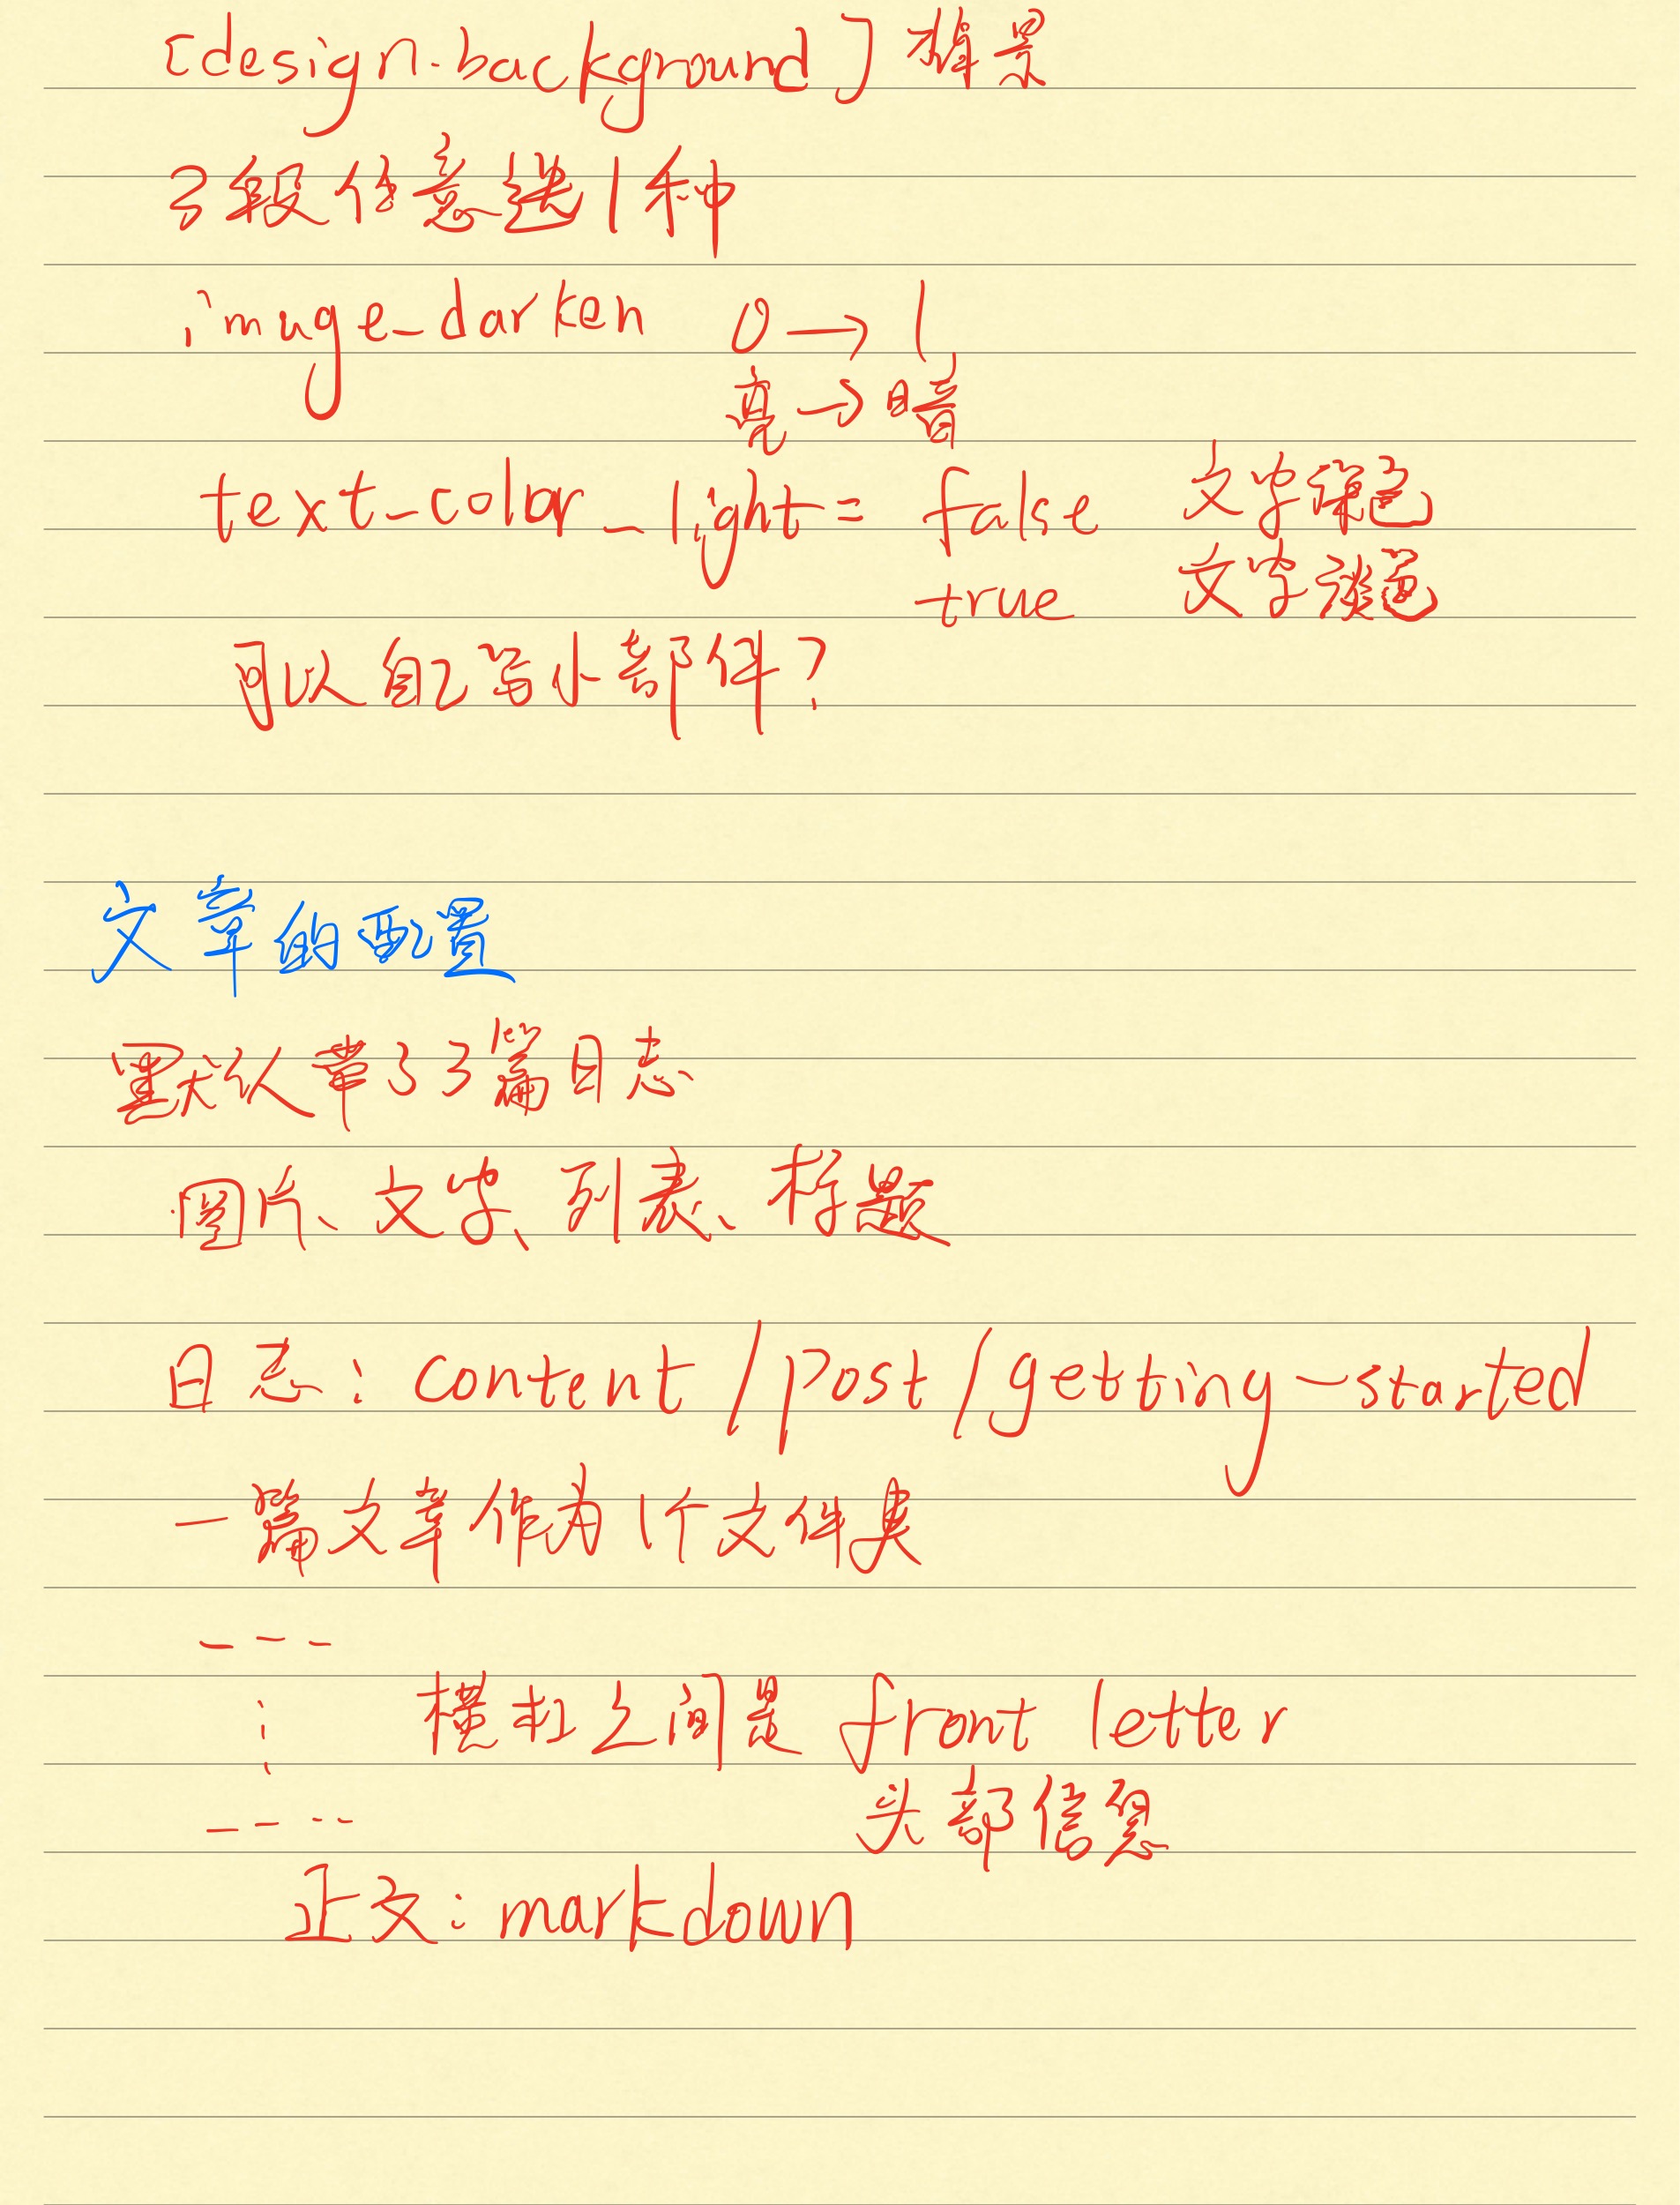 [design.background] 背景
3段任意选1种
image_darken 0→1
亮→暗
text_color_light = false 文字深色
true 文字淡色
可以自己写小部件?
文章的配置
默认带了3篇日志
图片、文字、列表、标题
日志: content/post/getting-started
一篇文章作为1个文件夹
---
⋮ 横杠之间是 front letter
---- 头部信息
正文: markdown